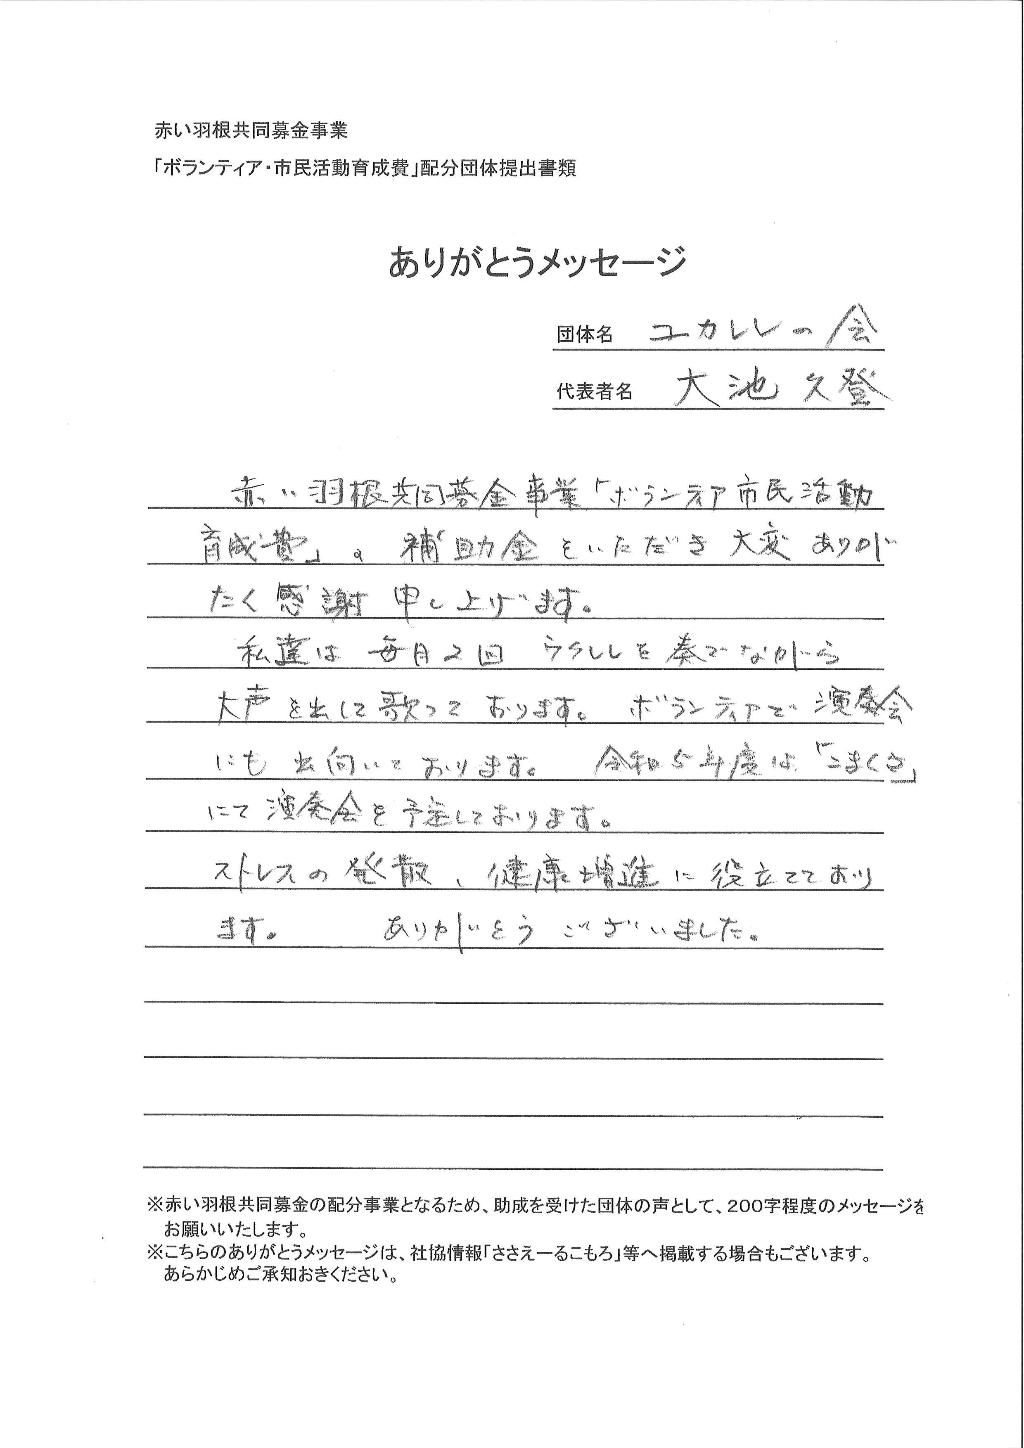 赤い羽根共同募金事業
「ボランティア・市民活動育成費」配分団体提出書類
ありがとうメッセージ
団体名 ユカレレの会
代表者名 大池久登
赤い羽根共同募金事業「ボランティア市民活動
育成費」の補助金をいただき大変ありが
たく感謝申し上げます。
私達は毎月2回 ウクレレを奏でながら
大声を出して歌っております。ボランティアで演奏会
にも出向いております。令和5年度は「こまくさ」
にて演奏会を予定しております。
ストレスの発散、健康増進に役立てており
ます。 ありがとうございました。
※赤い羽根共同募金の配分事業となるため、助成を受けた団体の声として、200字程度のメッセージを
お願いいたします。
※こちらのありがとうメッセージは、社協情報「ささえーるこもろ」等へ掲載する場合もございます。
あらかじめご承知おきください。